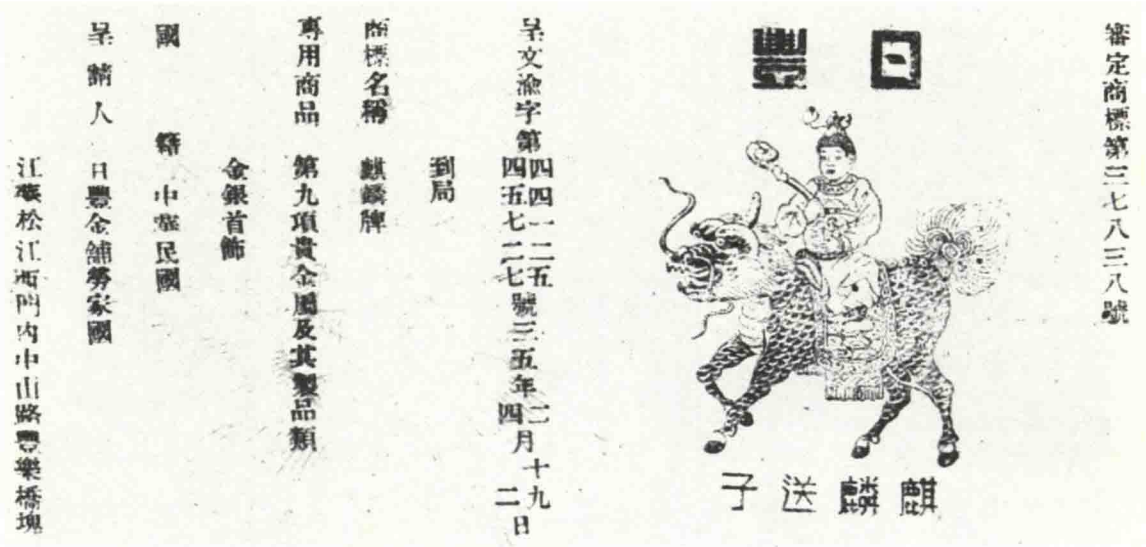 審定商標第三七八三八號
日豐
麒麟送子
呈文渝字第四四一二五四五七二七號三五年二四月十九二日
到局
商標名稱 麒麟牌
專用商品 第九項貴金屬及其製品類
金銀首飾
國籍 中華民國
呈請人 日豐金舖勞家國
江蘇松江西門內中山路豐樂橋塊